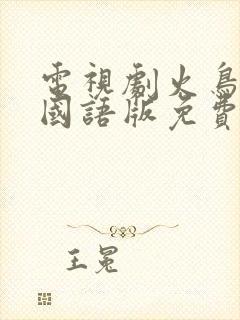 電視劇火鳥
國語版免費
王冕